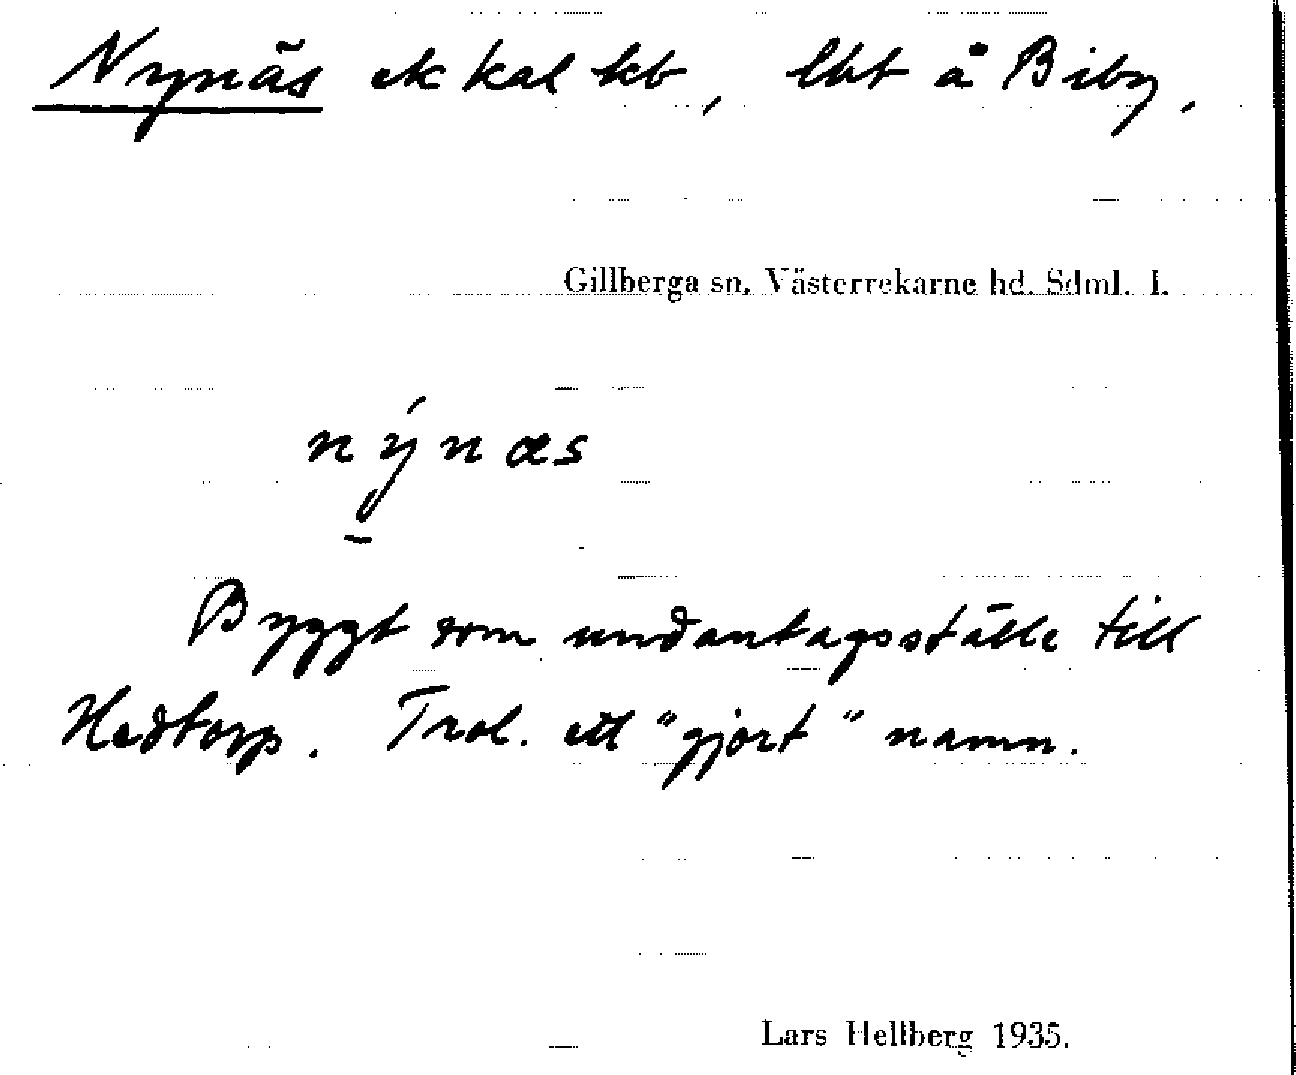 Nynäs ek kal kb, lht å Biby.
Gillberga sn, Västerrekarne hd. Sdml. l.
nýnæs
Byggt som undantagsställe till
Hedtorp. Trol. ett "gjort" namn.
Lars Hellberg 1935.